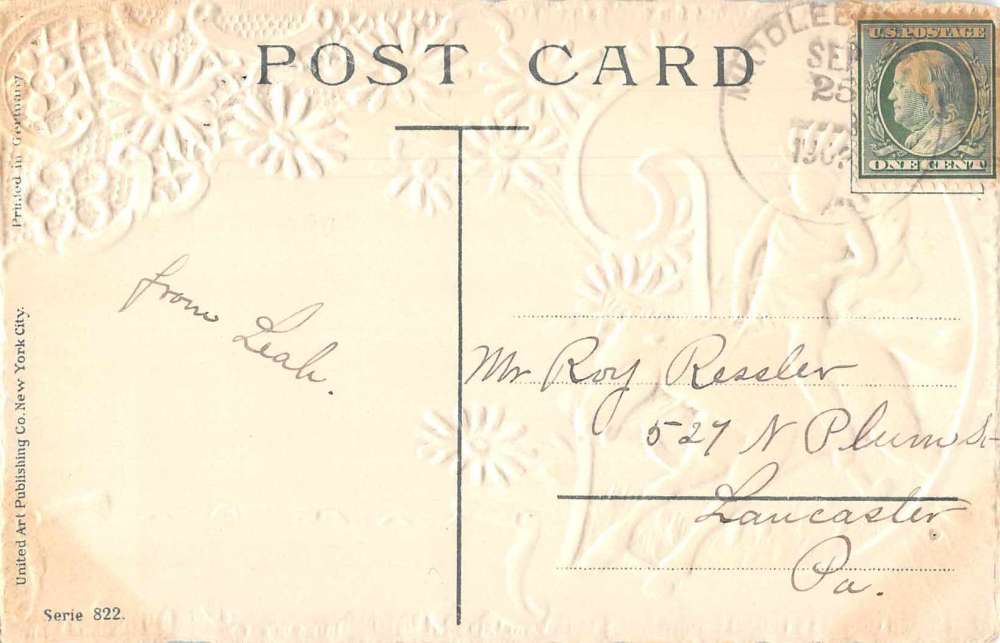 POST CARD
SEP
25
U.S. POSTAGE
ONE CENT
Printed in Germany
from Leah.
Mr Roy Ressler
527 N Plum St
Lancaster
Pa.
United Art Publishing Co. New York City.
Serie 822.